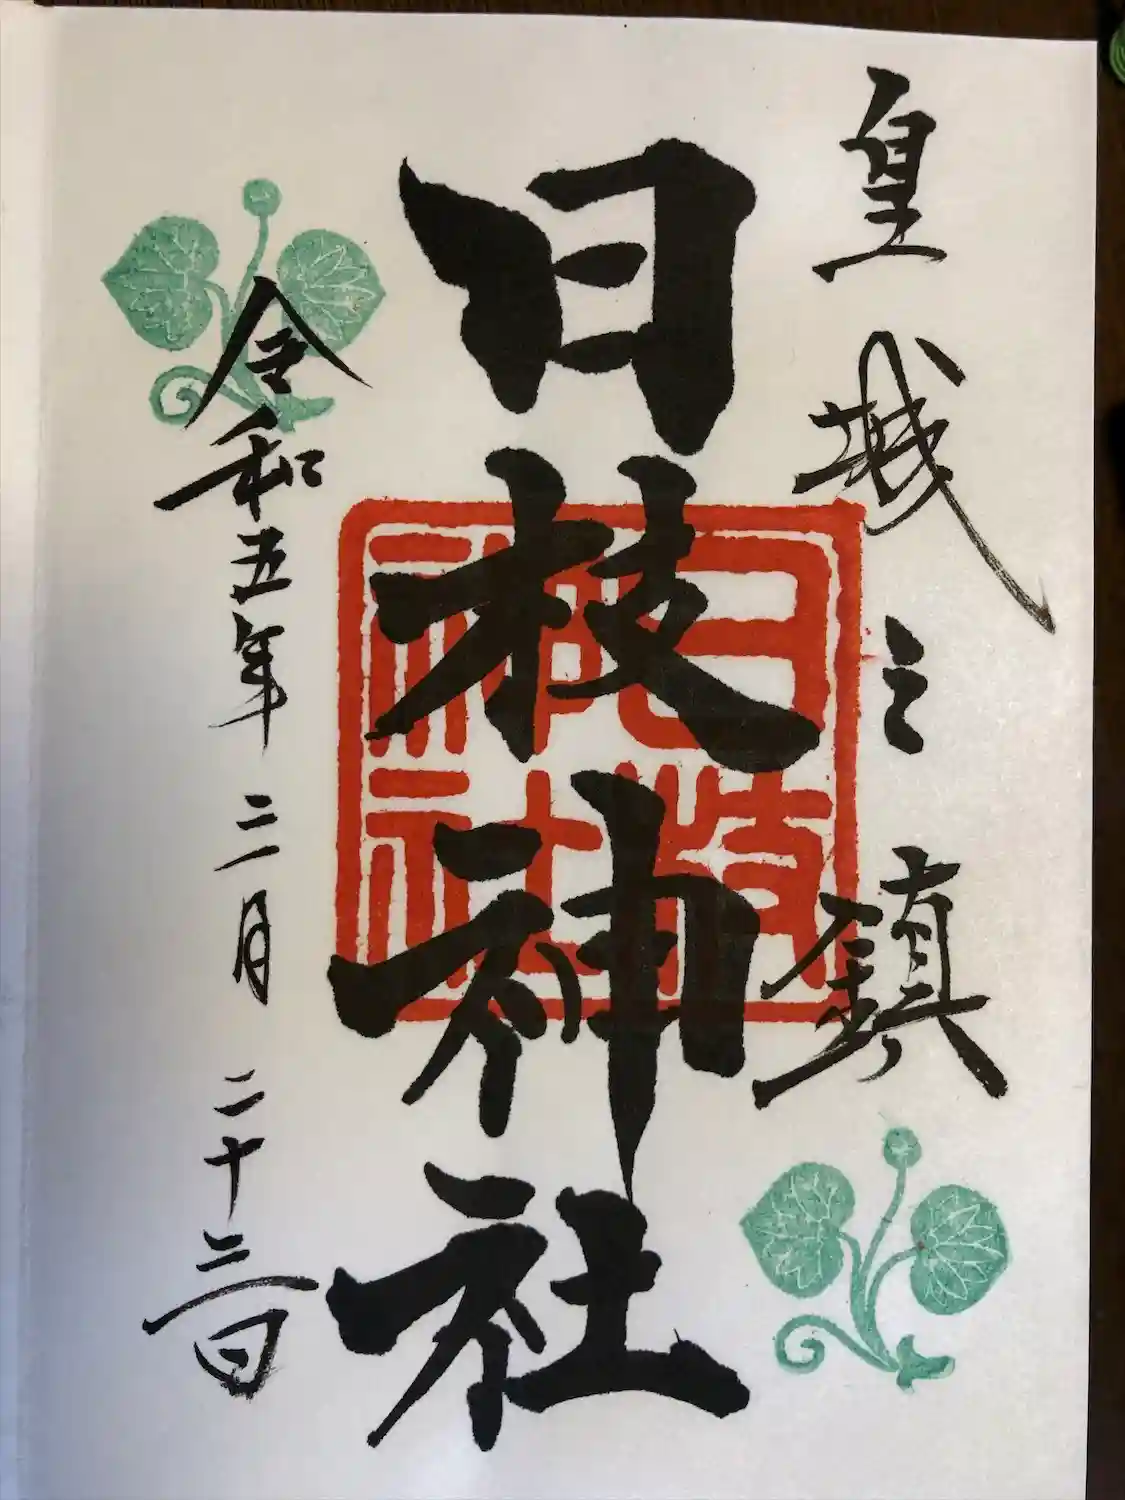 皇城之鎮
日枝神社
日枝神社
令和五年三月二十三日